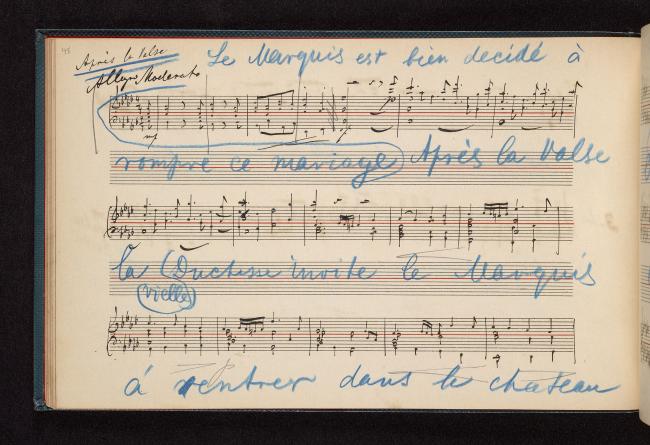 48
Après la Valse
Allegro Moderato
Le Marquis est bien decidé à
mf
rompre ce mariage Après la Valse
la Duchesse invite le Marquis
(vielle)
à rentrer dans le chateau